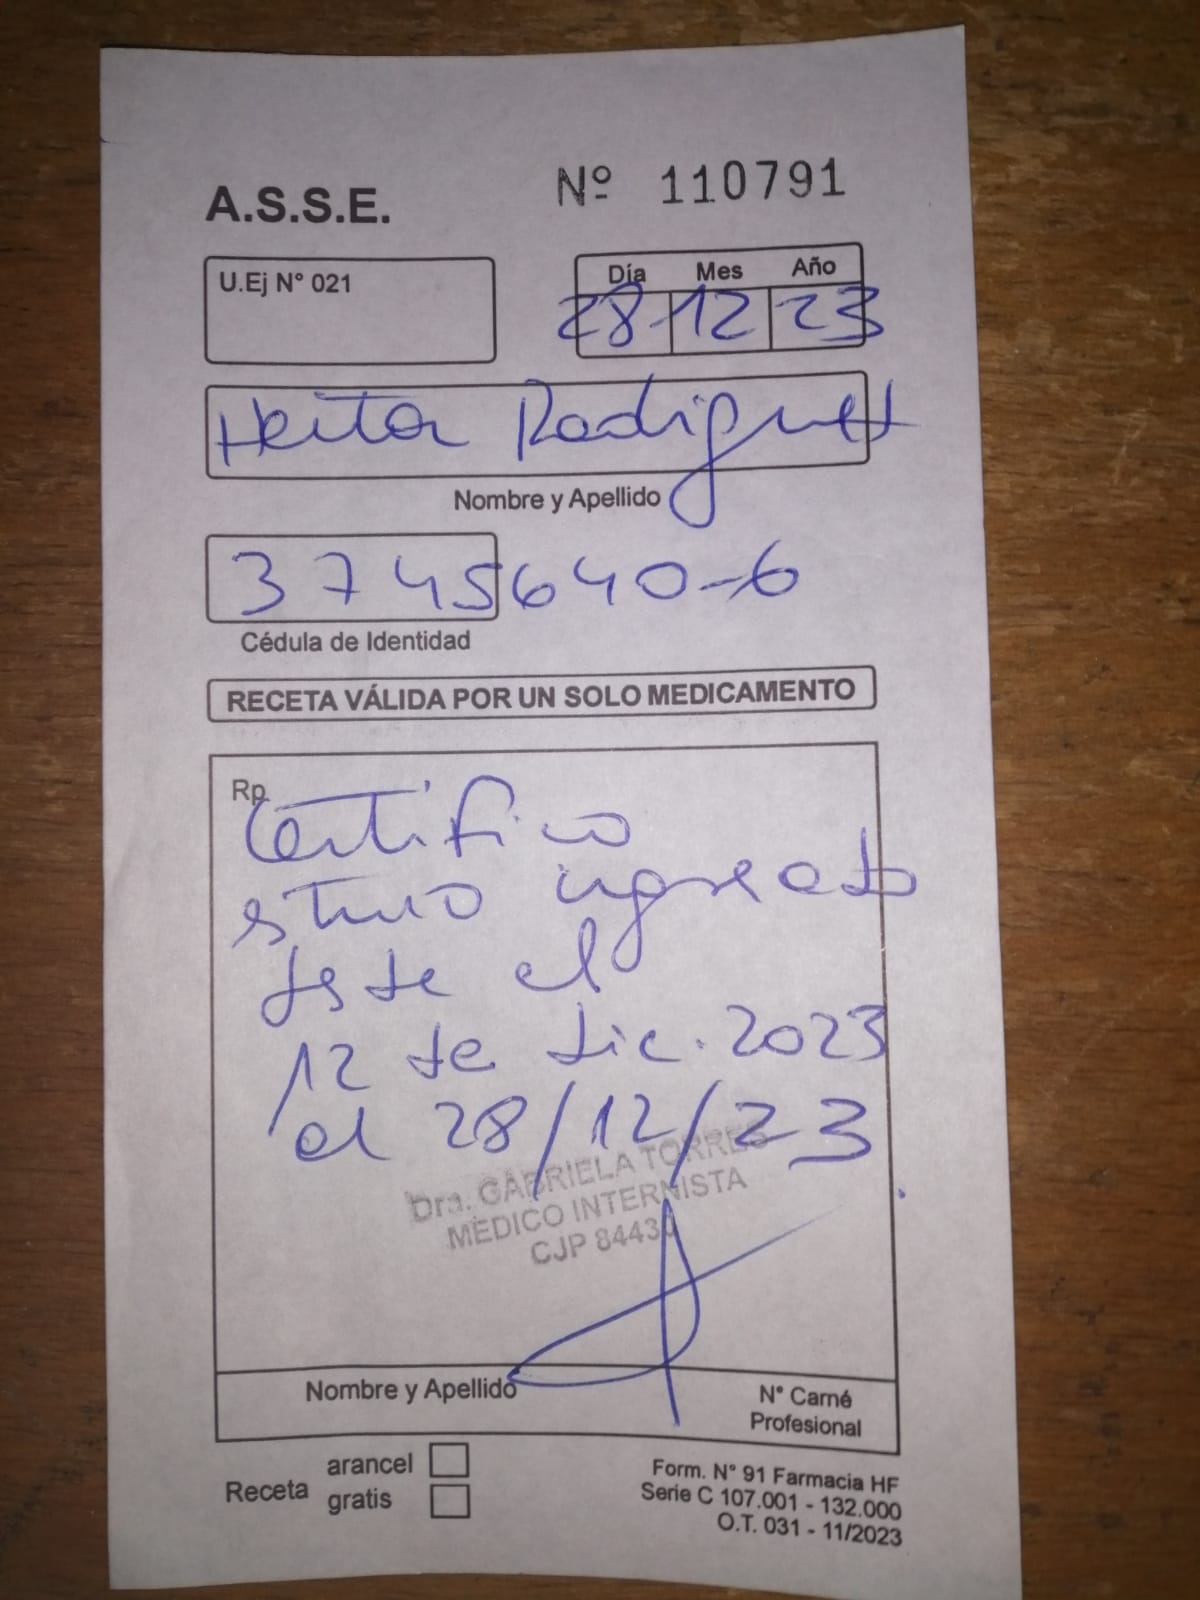 A.S.S.E.
Nº 110791
U.Ej N° 021
Día Mes Año
28 12 23
Heitor Rodriguez
Nombre y Apellido
3745640-6
Cédula de Identidad
RECETA VÁLIDA POR UN SOLO MEDICAMENTO
Rp
Certifico
estuvo ingresado
desde el
12 de dic. 2023
al 28/12/23
Dra. GABRIELA TORRES
MEDICO INTERNISTA
CJP 84430
Nombre y Apellido
N° Carné
Profesional
Receta
arancel
gratis
Form. N° 91 Farmacia HF
Serie C 107.001 - 132.000
O.T. 031 - 11/2023